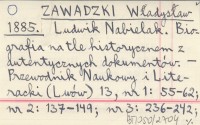 ZAWADZKI Władysław
1885. Ludwik Nabielak. Bio-
grafia na tle historycznem z
autentycznych dokumentów. -
Przewodnik Naukowy i Lite-
racki (Lwów) 13, nr 1: 55-62;
nr 2: 137-149; nr 3: 236-242;